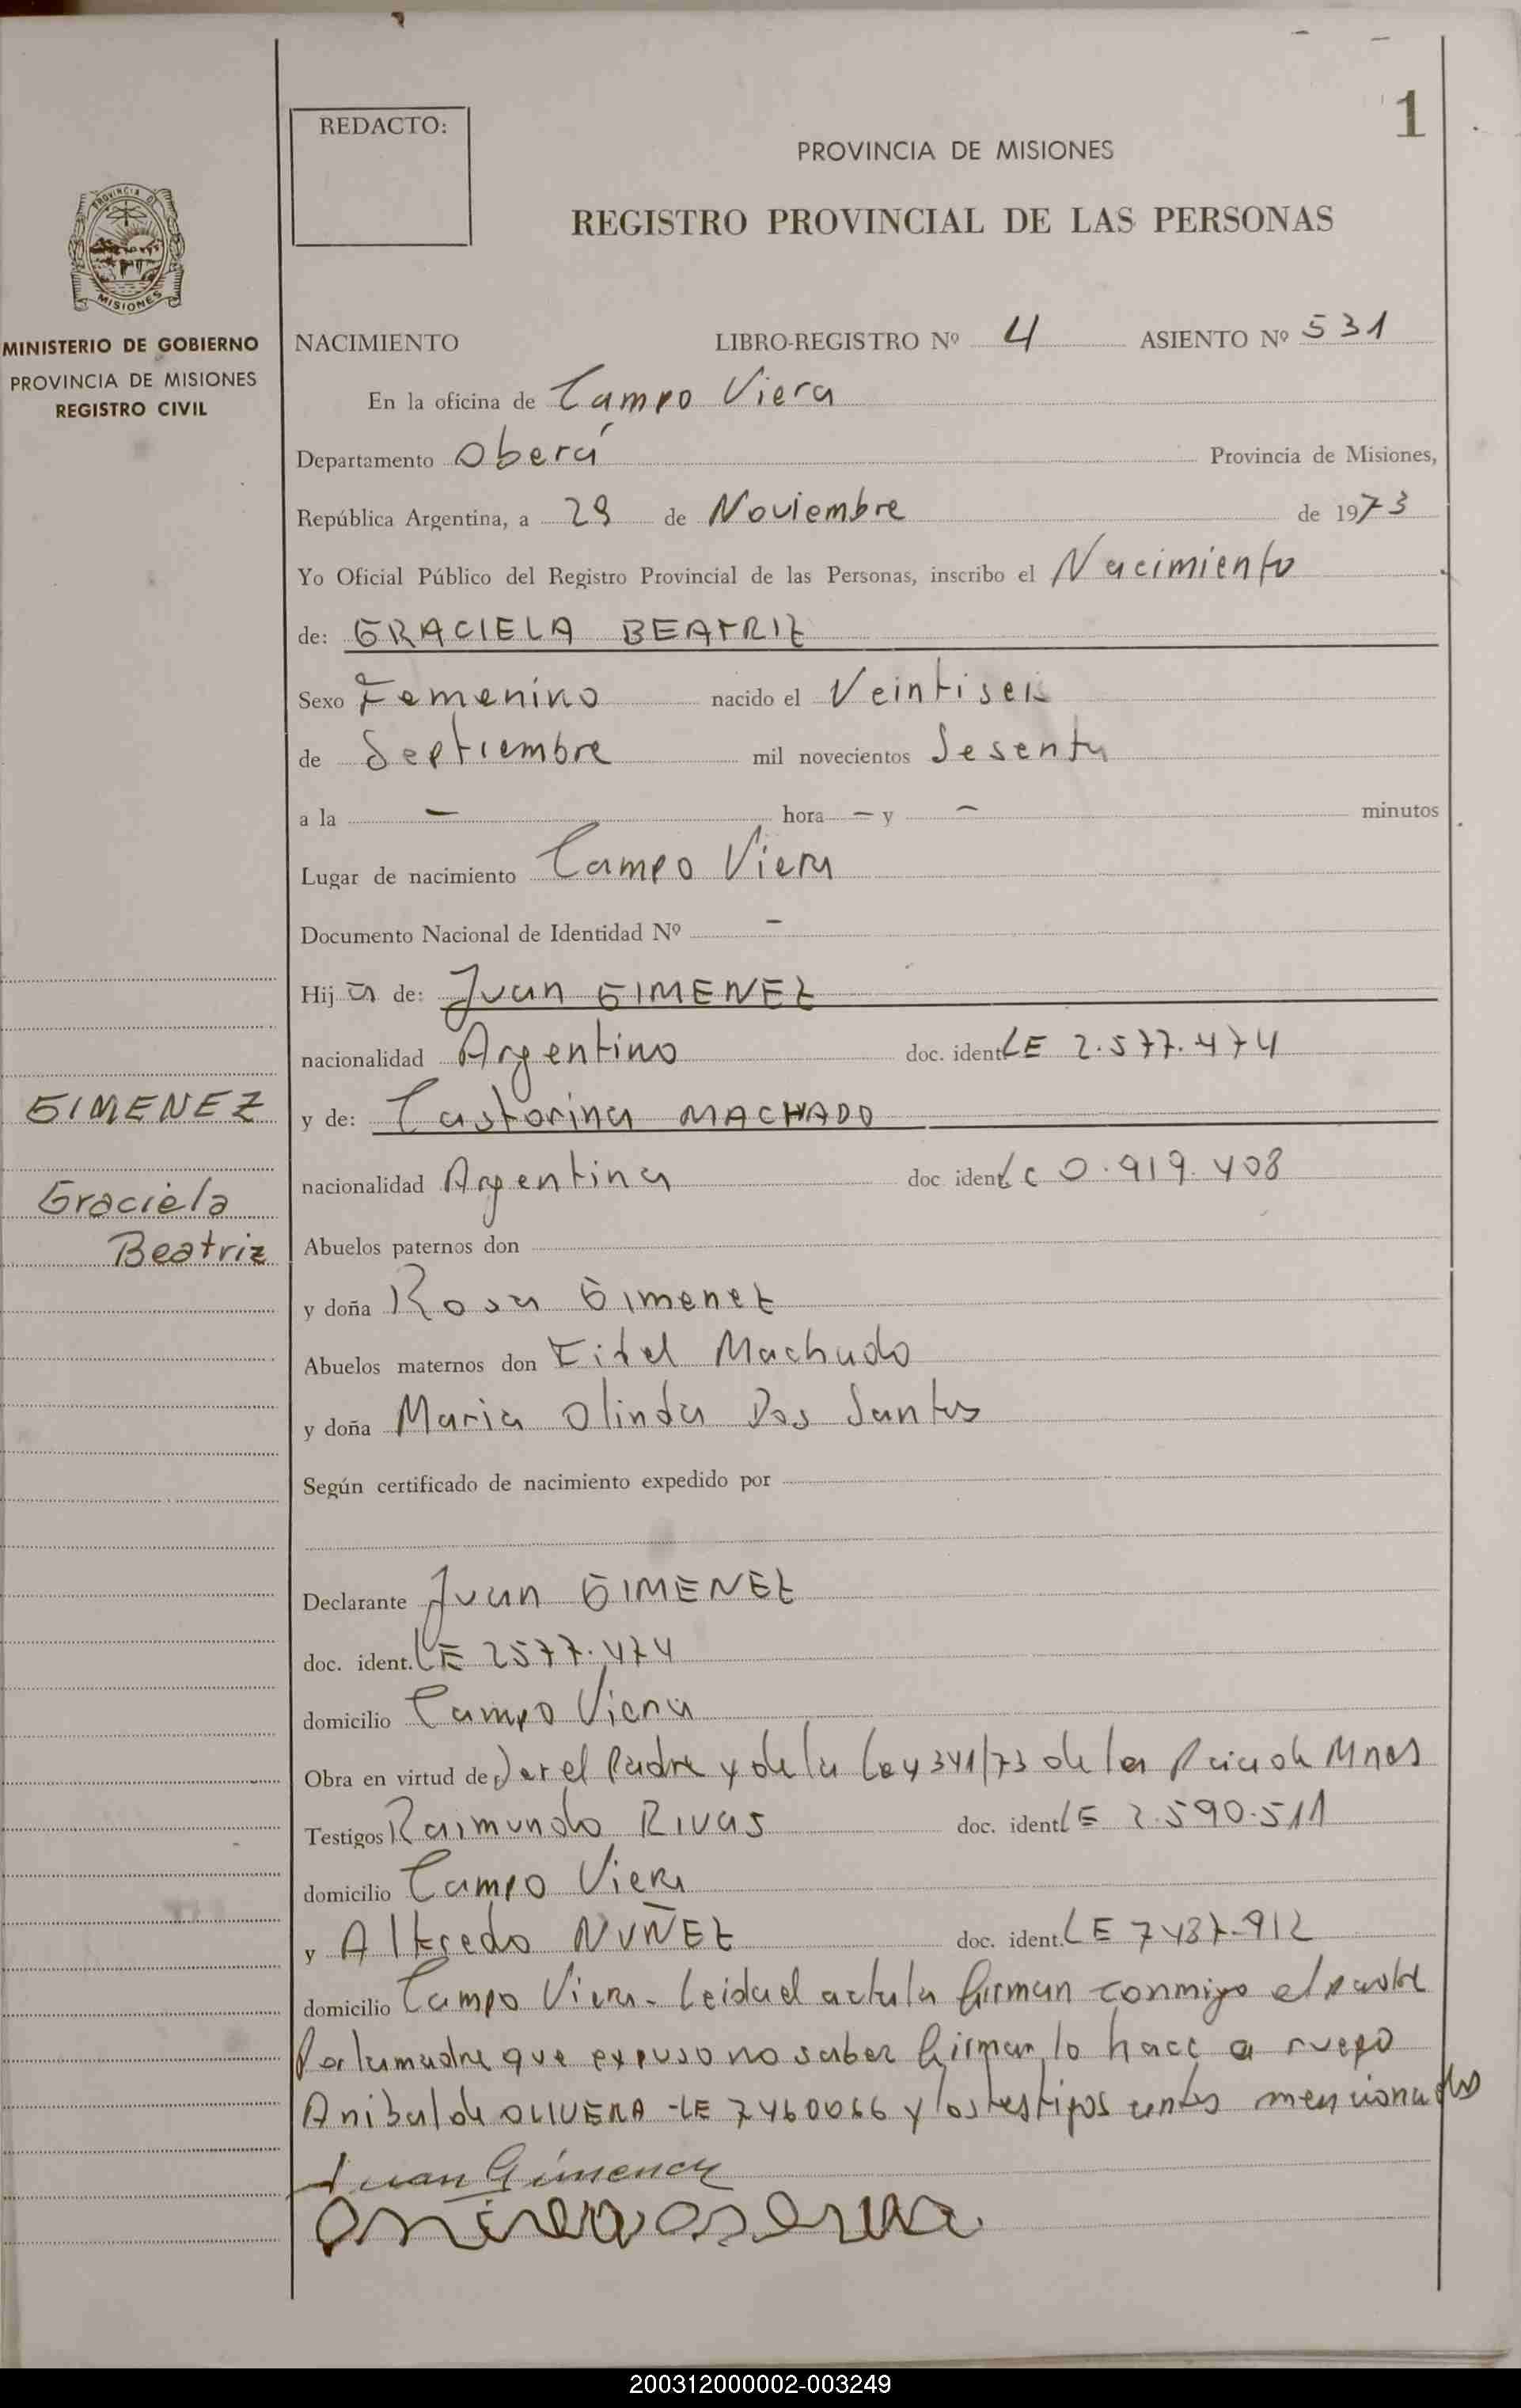 1
REDACTO:
PROVINCIA DE MISIONES
REGISTRO PROVINCIAL DE LAS PERSONAS
PROVINCIA D
MISIONES
MINISTERIO DE GOBIERNO
PROVINCIA DE MISIONES
REGISTRO CIVIL
NACIMIENTO LIBRO-REGISTRO Nº 4 ASIENTO Nº 531
En la oficina de Campo Viera
Departamento Oberá Provincia de Misiones,
República Argentina, a 29 de Noviembre de 1973
Yo Oficial Público del Registro Provincial de las Personas, inscribo el Nacimiento
de: GRACIELA BEATRIZ
Sexo Femenino nacido el Veintiseis
de Septiembre mil novecientos Sesenta
a la - hora - y - minutos
Lugar de nacimiento Campo Viera
Documento Nacional de Identidad Nº -
Hij a de: Juan GIMENEZ
nacionalidad Argentino doc. ident LE 2.577.474
GIMENEZ
y de: Castorina MACHADO
nacionalidad Argentina doc ident LC 0.919.408
Graciela
Beatriz
Abuelos paternos don
y doña Rosa Gimenez
Abuelos maternos don Machado
y doña Maria Olinda Dos Santos
Según certificado de nacimiento expedido por
Declarante Juan GIMENEZ
doc. ident. LE 2577.474
domicilio Campo Viera
Obra en virtud de Ser el Padre y de la Ley 341/73 de la Pcia de Mnes
Testigos Raimundo RIVAS doc. ident LE 2.590.511
domicilio Campo Viera
y Alfredo NUÑEZ doc. ident. LE 7487.912
domicilio Campo Viera - Leida el acta la firman conmigo el padre
Por la madre que expuso no saber firmar, lo hace a ruego
Anibal de OLIVERA - LE 7460066 y los testigos antes mencionados
Juan Gimenez
200312000002-003249